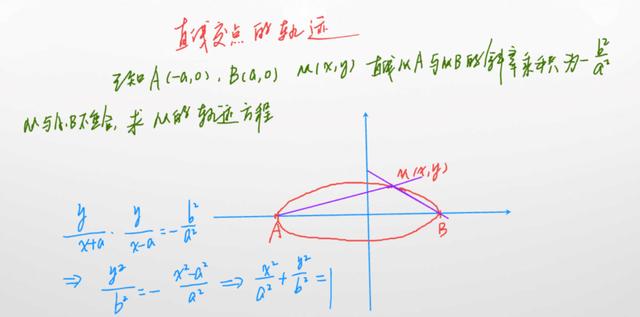 直线交点的轨迹
已知A(-a,0), B(a,0) M(x,y) 直线MA与MB的斜率乘积为-b²/a²
M与A、B不重合, 求M的轨迹方程
M(x,y)
A
B
y/(x+a)·y/(x-a)=-b²/a²
⇒ y²/b²=-(x²-a²)/a² ⇒ x²/a²+y²/b²=1